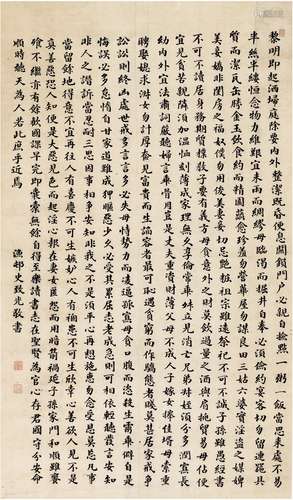 黎明即起灑掃庭除要內外整潔既昏便息關鎖門戶必親自檢點一粥一飯當思來處不易
半絲半縷恒念物力維艱宜未雨而綢繆毋臨渴而掘井自奉必須儉約宴客切勿留連器具
質而潔瓦缶勝金玉飲食約而精園蔬愈珍饈勿營華屋勿謀良田三姑六婆淫盜之媒婢
美妾嬌非閨房之福奴僕勿用俊美妻妾切忌艷妝祖宗雖遠祭祀不可不誠子孫雖愚經書
不可不讀居身務期質樸教子要有義方毋貪意外之財莫飲過量之酒與肩挑貿易毋佔便
宜見貧苦親鄰須加溫恤刻薄成家理無久享倫常乖舛立見消亡兄弟叔姪須分多潤寡長
幼內外宜法肅辭嚴聽婦言乖骨肉豈是丈夫重貲財薄父母不成人子嫁女擇佳婿毋索重
聘娶媳求淑女勿計厚奩見富貴而生諂容者最可恥遇貧窮而作驕態者賤莫甚居家戒爭
訟訟則終凶處世戒多言言多必失毋恃勢力而凌逼孤寡毋貪口腹而恣殺牲禽乖僻自是
悔誤必多頹惰自甘家道難成狎昵惡少久必受其累屈志老成急則可相依輕聽發言安知
非人之譖訴當忍耐三思因事相爭安知非我之不是須平心再想施惠勿念受恩莫忘凡事
當留餘地得意不宜再往人有喜慶不可生嫉妒心人有禍患不可生欣幸心善欲人見不是
真善惡恐人知便是大惡見色而起淫心報在妻女匿怨而用暗箭禍延子孫家門和順雖饔
飧不繼亦有餘歡國課早完即囊橐無餘自得至樂讀書志在聖賢為官心存君國守分安命
順時聽天為人若此庶乎近焉
漁邨史致光敬書